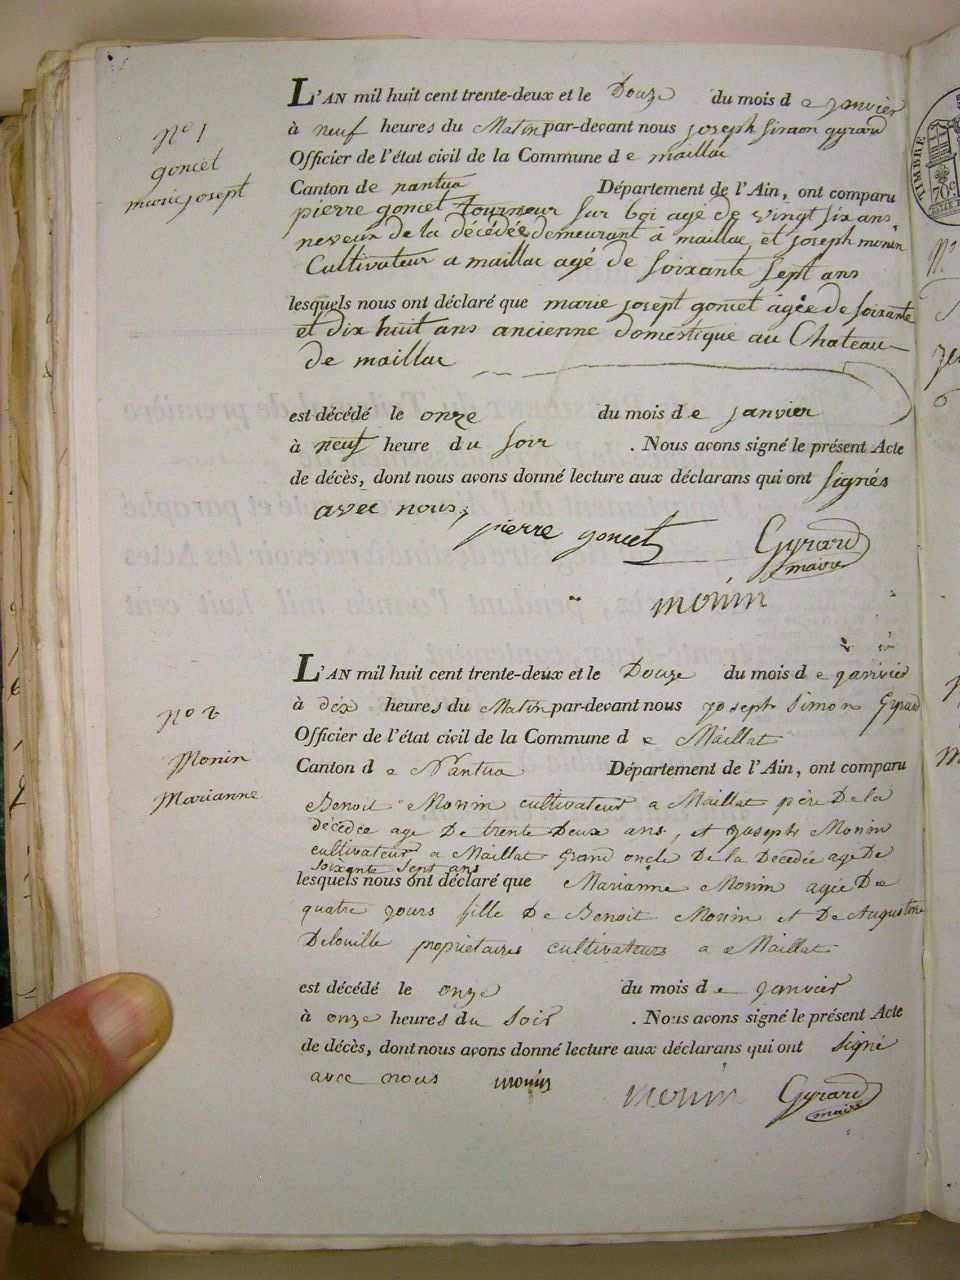 L'AN mil huit cent trente-deux et le Douze du mois d e janvier
n° 1
à neuf heures du Matin par-devant nous joseph simon gyrard
goncet
Officier de l'état civil de la Commune d e maillac
marie josept
Canton de nantua Département de l'Ain, ont comparu
pierre goncet Tourneur sur boi agé de vingt six ans
neveux de la décédée demeurant a maillac et joseph monin
Cultivateur a maillac agé de soixante sept ans
lesquels nous ont déclaré que marie josept goncet agée de soixante
et dix huit ans ancienne domestique au Chateau
de maillac
est décédé le onze du mois d e janvier
à neuf heure du soir . Nous avons signé le présent Acte
de décès, dont nous avons donné lecture aux déclarans qui ont signés
avec nous,
pierre goncet Gyrard
maire
monin
L'AN mil huit cent trente-deux et le Douze du mois d e janvier
n° 2
à dix heures du Matin par-devant nous joseph simon Gyrard
Officier de l'état civil de la Commune d e Maillat
Monin
Canton d e Nantua Département de l'Ain, ont comparu
Marianne
Benoit Monin cultivateur a Maillat père De la
décédée age De trente Deux ans, et joseph Monin
cultivateur a Maillat Grand oncle De la Decedée age De
soixante sept ans
lesquels nous ont déclaré que Marianne Monin agée De
quatre jours fille De Benoit Monin et De Augustine
Delouille propriétaires cultivateurs a Maillat
est décédé le onze du mois d e janvier
à onze heures du soir . Nous avons signé le présent Acte
de décès, dont nous avons donné lecture aux déclarans qui ont signé
avec nous monin monin Gyrard
maire
TIMBRE
70 c